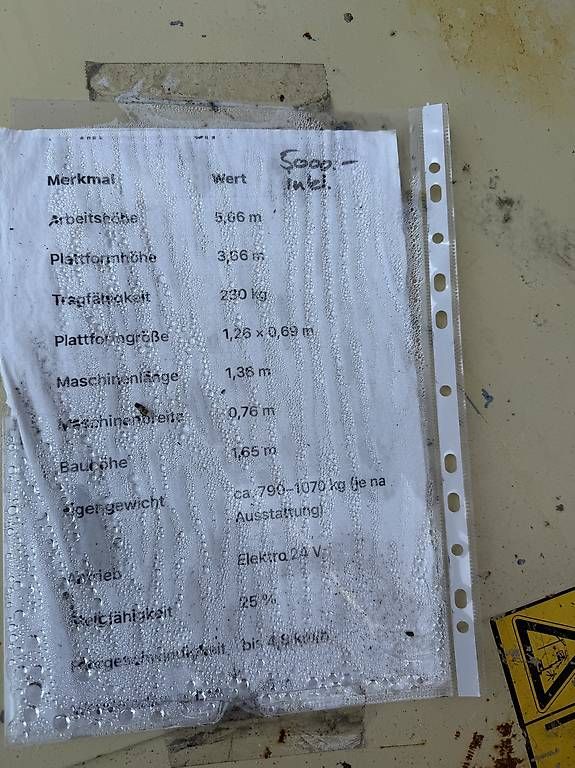 5000.-
inkl.
Merkmal Wert
Arbeitshöhe 5,66 m
Plattformhöhe 3,66 m
Tragfähigkeit 230 kg
Plattformgröße 1,26 x 0,69 m
Maschinenlänge 1,36 m
Maschinenbreite 0,76 m
Bauhöhe 1,65 m
Eigengewicht ca. 790–1070 kg (je na
Ausstattung)
Antrieb Elektro 24 V
Steigfähigkeit 25 %
bis 4,8 km/h